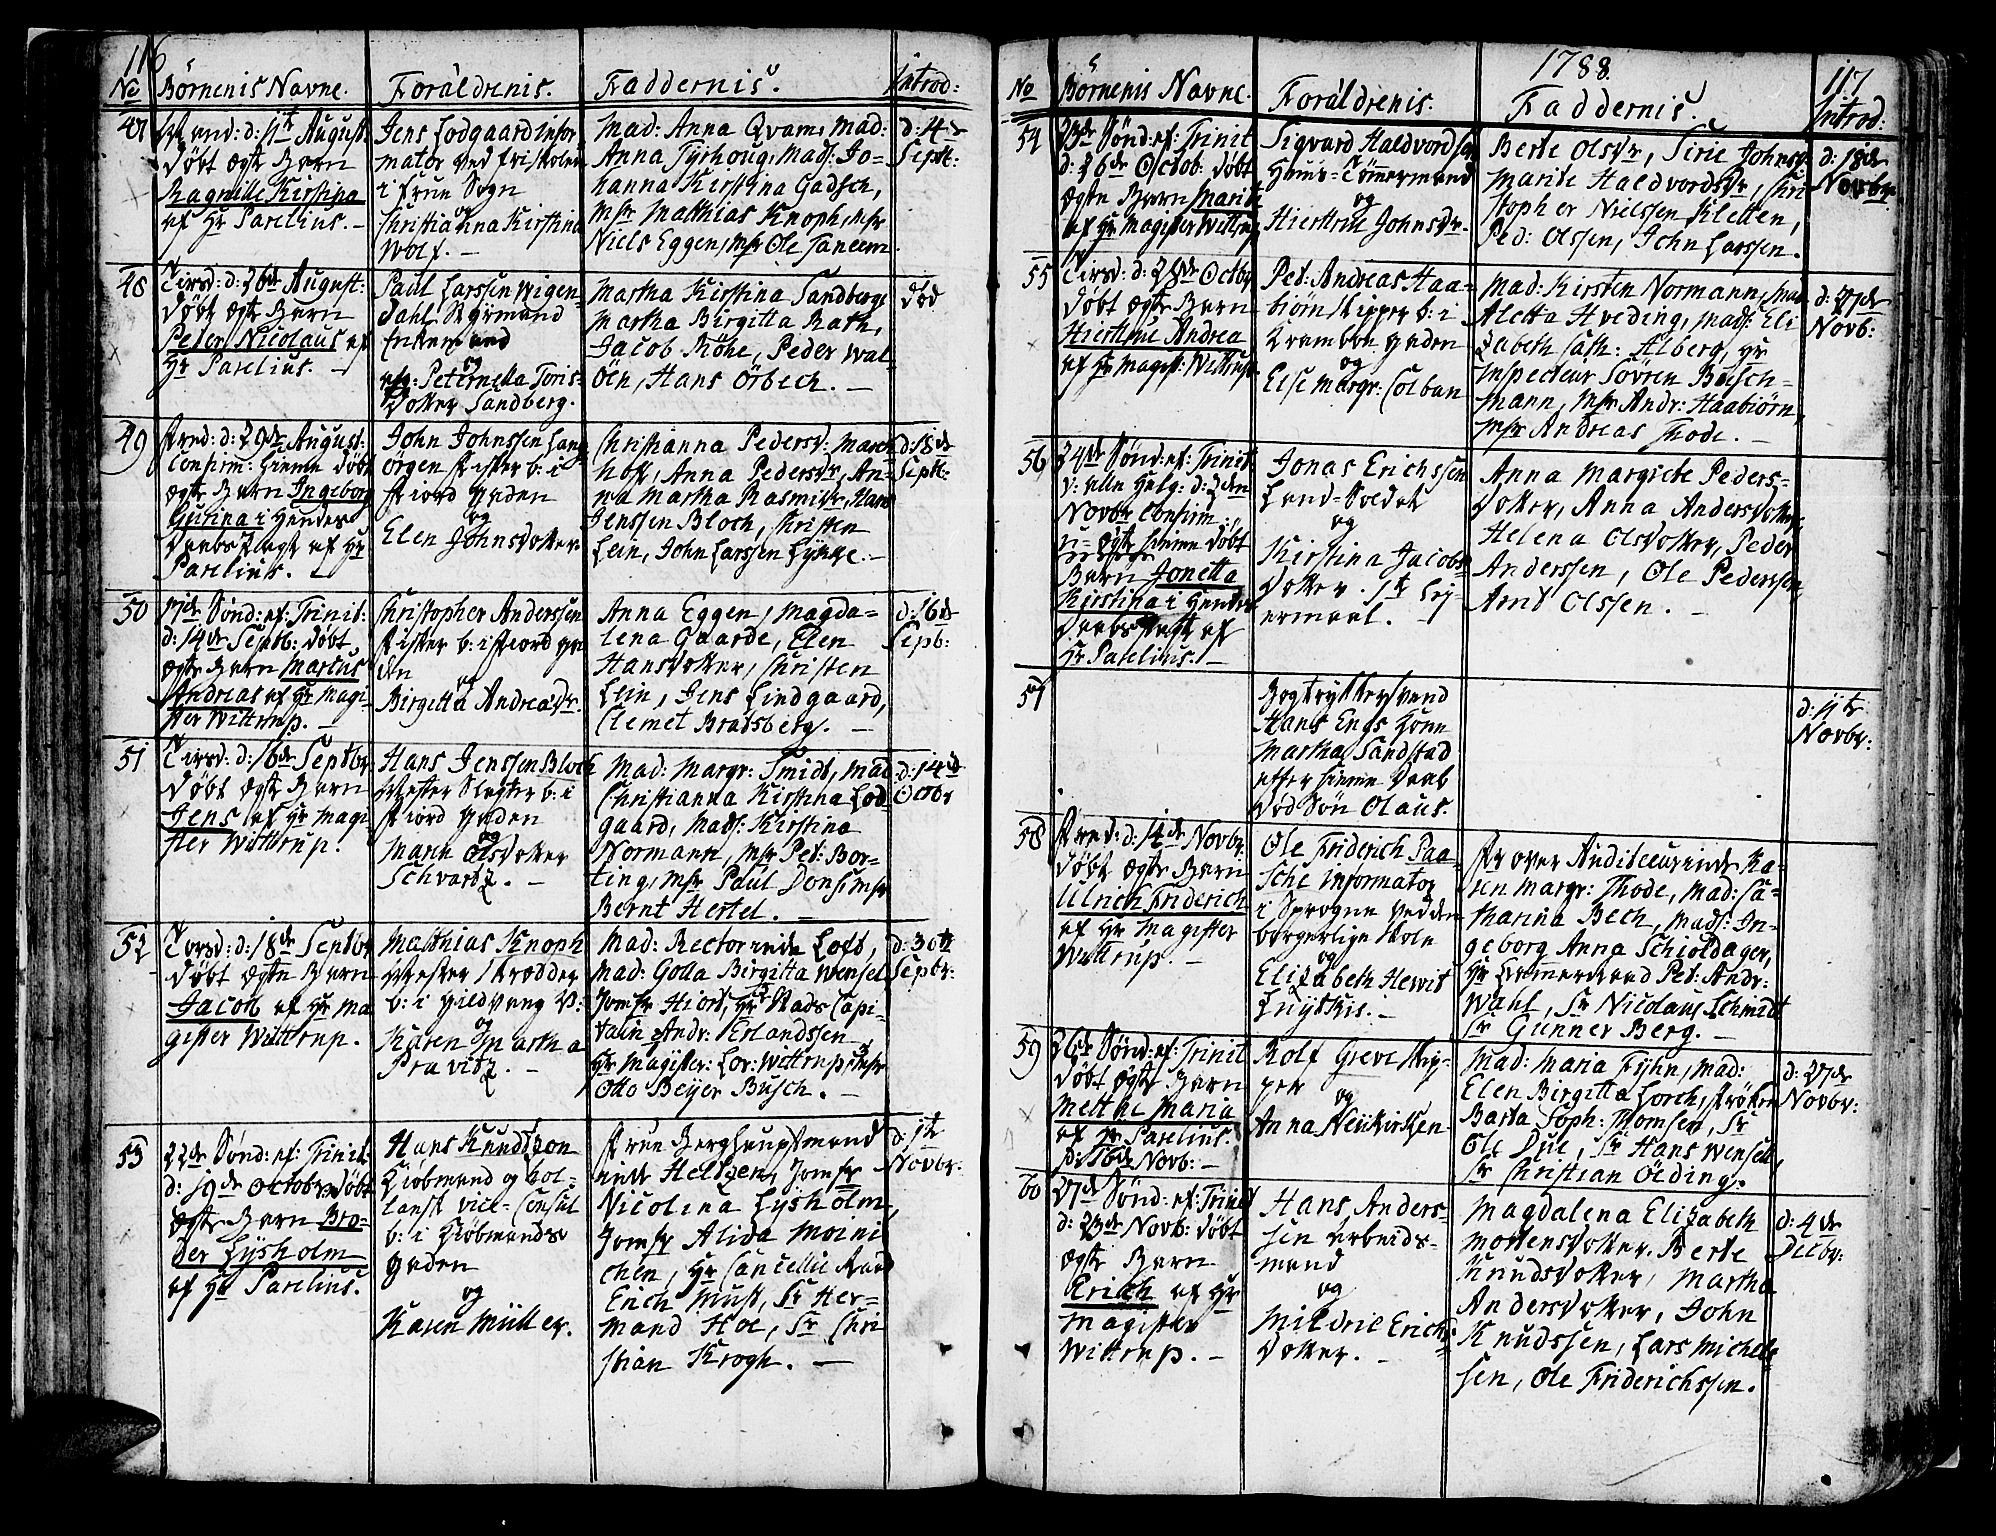 116
No
Börnenis Navne.
Forældrenis.
Faddernis.
Introd:
47
August.
döbt ægte Barn
Ragnille Kirstina
af Hr Parelius. –
Jens Lodgaard infor-
mator ved friskolen
i frue Sogn
og
Christianna Kirstina
Wolf. –
Mad: Anna Qvam, Mad:
Anna Tyrhoug, Mads: Jo-
hanna Kirstina Gadsch,
Msr Matthias Knoph, Msr
Niels Eggen, Msr Ole Saneem.
d: 4de
Septb:
48
Tirsd: d: 26de August:
döbt ægte Barn
Peder Nicolaus af
Hr Parelius. –
Paul Larssen Wigen-
dahl Styrmand
og
Peternella Toris-
dotter Sandberg.
Martha Kirstina Sandberg,
Martha Birgitta Rath,
Jacob Röhe, Peder Wal-
öen, Hans Örbech. –
död
49
Fred: d: 29de August:
Confirm: hiemme döbt
ægte Barn Ingeborg
Gurina i Hendes
Daabs Pagt af Hr
Parelius. –
John Johnssen Lang-
örgen fisker b: i
Fiord gaden
og
Elen Johnsdotter
Christianna Pedersdr March-
hoff, Anna Pedersdr, An-
na Martha Rasmusdr, Hans
Jenssen Bloch, Christen
Lein, John Larssen Lykke. –
d: 18de
Septb:
50
17de Sönd: ef: Trinit:
d: 14de Septb: döbt
ægte Barn Marcus
Andreas af Hr Magi-
ster Wittrup. –
Christopher Anderssen
fisker b: i Fiord ga-
den
og
Birgitta Andreasdr.
Anna Eggen, Magda-
lena Gaarde, Elen
Hansdotter, Christen
Lein, Jens Lindgaard,
Clemet Bratsberg. –
d: 16de
Septb:
51
Tirsd: d: 16de Septbr
döbt ægte Barn
Jens af Hr Magi-
ster Wittrup.
Hans Jenssen Bloch
Mester Slagter b: i
Fiord gaden
og
Maren Olsdotter
Schvartz. –
Mad: Margr: Smidt, Mad:
Christianna Kirstina Lod-
gaard, Mads: Kirstina
Normann, Msr Pet: Bor-
ting, Msr Paul Dons, Msr
Bernt Hertel. –
d: 14de
Octbr
52
Torsd: d: 18de Septbr
döbt ægte Barn
Jacob af Hr Ma-
gister Wittrup.
Matthias Knoph
Mester Skrædder
b: i Vildveng V:
og
Karen Martha
Pravitz. –
Mad: Rectorinde Loft,
Mad: Golla Birgitta Wensel
Jomfr Hiort, Hr Stads Capi-
tain Andr: Erlandssen
Hr Magister: Lor: Wittrup, Msr
Otto Beyer Busch. –
d: 30te
Septbr:
53
22de Sönd: ef: Trinit:
d: 19de Octobr döbt
ægte Barn Bro-
der Lysholm
af Hr Parelius.
Hans Knudtzon
Kiöbmand og hol-
lansk vice-Consul
b: i Kiöbmands
gaden
og
Karen Müller.
Frue Berghauptmand-
inde Heltzen, Jomfr
Nicolina Lysholm,
Jomfr Alida Moini-
chen, Hr Cancellie Raad
Erich Must, Sr Her-
mand Hoe, Sr Chri-
stian Krogh. –
d: 1te
Novbr:
1788.
117
No
Börnenis Navne.
Forældrenis.
Faddernis.
Introd:
54
23de Sönd: ef: Trinit
d: 26de Octob: döbt
ægte Barn Marit
af Hr Magister Wittrup
Sigvard Haldvordsen
Huus-Tömermand
og
Hierttrue Johnsdr.
Berte Olsdr, Sirie Johnsdr
Marite Haldvordsdr, Chri-
stopher Nielssen Kletten,
Ped: Olssen, John Larssen.
d: 18de
Novbr
55
Tirsd: d: 28de Octbr
döbt ægte Barn
Hiertrue Andrea
af Hr Magist: Wittrup
Pet: Andreas Haa-
biörn Skipper b: i
Kramboe gaden
og
Else Margr: Colban
Mad: Kirsten Normann, Mad:
Aletta Hveding, Mads: Eli-
zabeth Cath: Alberg, Hr
Inspecteur Sövren Busch-
mann, Msr Andr: Haabiörn,
Msr Andreas Thode. –
d: 27de
Novb:
56
24de Sönd: ef: Trinit
v: alle Helg: d: 2den
Novbr Confirm:
ægte hiemme döbt
Barn Jonetta
Kirstina i Hendes
Daabs Pagt af
Hr Parelius. –
Jonas Erichssen
Land-Soldat
og
Kirstina Jacobs-
dotter.
ermaal. –
Anna Margrete Peders-
dotter, Anna Andersdotter,
Helena Olsdotter, Peder
Anderssen, Ole Pederssen,
Arnt Olssen. –
57
Bogtrykkersvend
Hans Engs Kone
Martha Sandstad
efter hiemme Daab
död Sön Olaus.
d: 11te
Novbr:
58
Fred: d: 14de Novbr:
döbt ægte Barn
Ulrich Friderich
af Hr Magister
Wittrup. –
Ole Friderich Paa-
sche Informator
i Sprogne ved den
borgerlige Skole
og
Elizabeth Hewit
Luytkis. –
Fr over Auditeurinde Ka-
ren Margr: Thode, Mad: Ca-
tharina Bech, Mads: In-
geborg Anna Schioldager,
Hr Cammerraad Pet: Andr:
Wahl, Sr Nicolaus Schmidt
Sr Gunner Berg. –
59
26de Sönd: ef: Trinit
döbt ægte Barn
Metthe Maria
af Hr Parelius.
d: 16de Novb: –
Rolf Greve Skip-
per
og
Anna Neukirken
Mad: Maria Fyhn, Mad:
Elen Birgitta Lorch, Fröken
Barta Soph: Momsen, Sr
Ole Due, Sr Hans Wensell,
Sr Christian Ölding.
d: 27de
Novbr:
60
27de Sönd: ef: Trinit
d: 23de Novb: döbt
ægte Barn
Erich af Hr
Magister
Wittrup. –
Hans Anders-
sen Arbeids-
mand
og
Mildrie Erichs-
dotter. –
Magdalena Elizabeth
Mortensdotter, Berte
Knudsdotter, Martha
Andersdotter, John
Knudssen, Lars Michel-
sen, Ole Friderichssen.
d: 4de
Decbr: